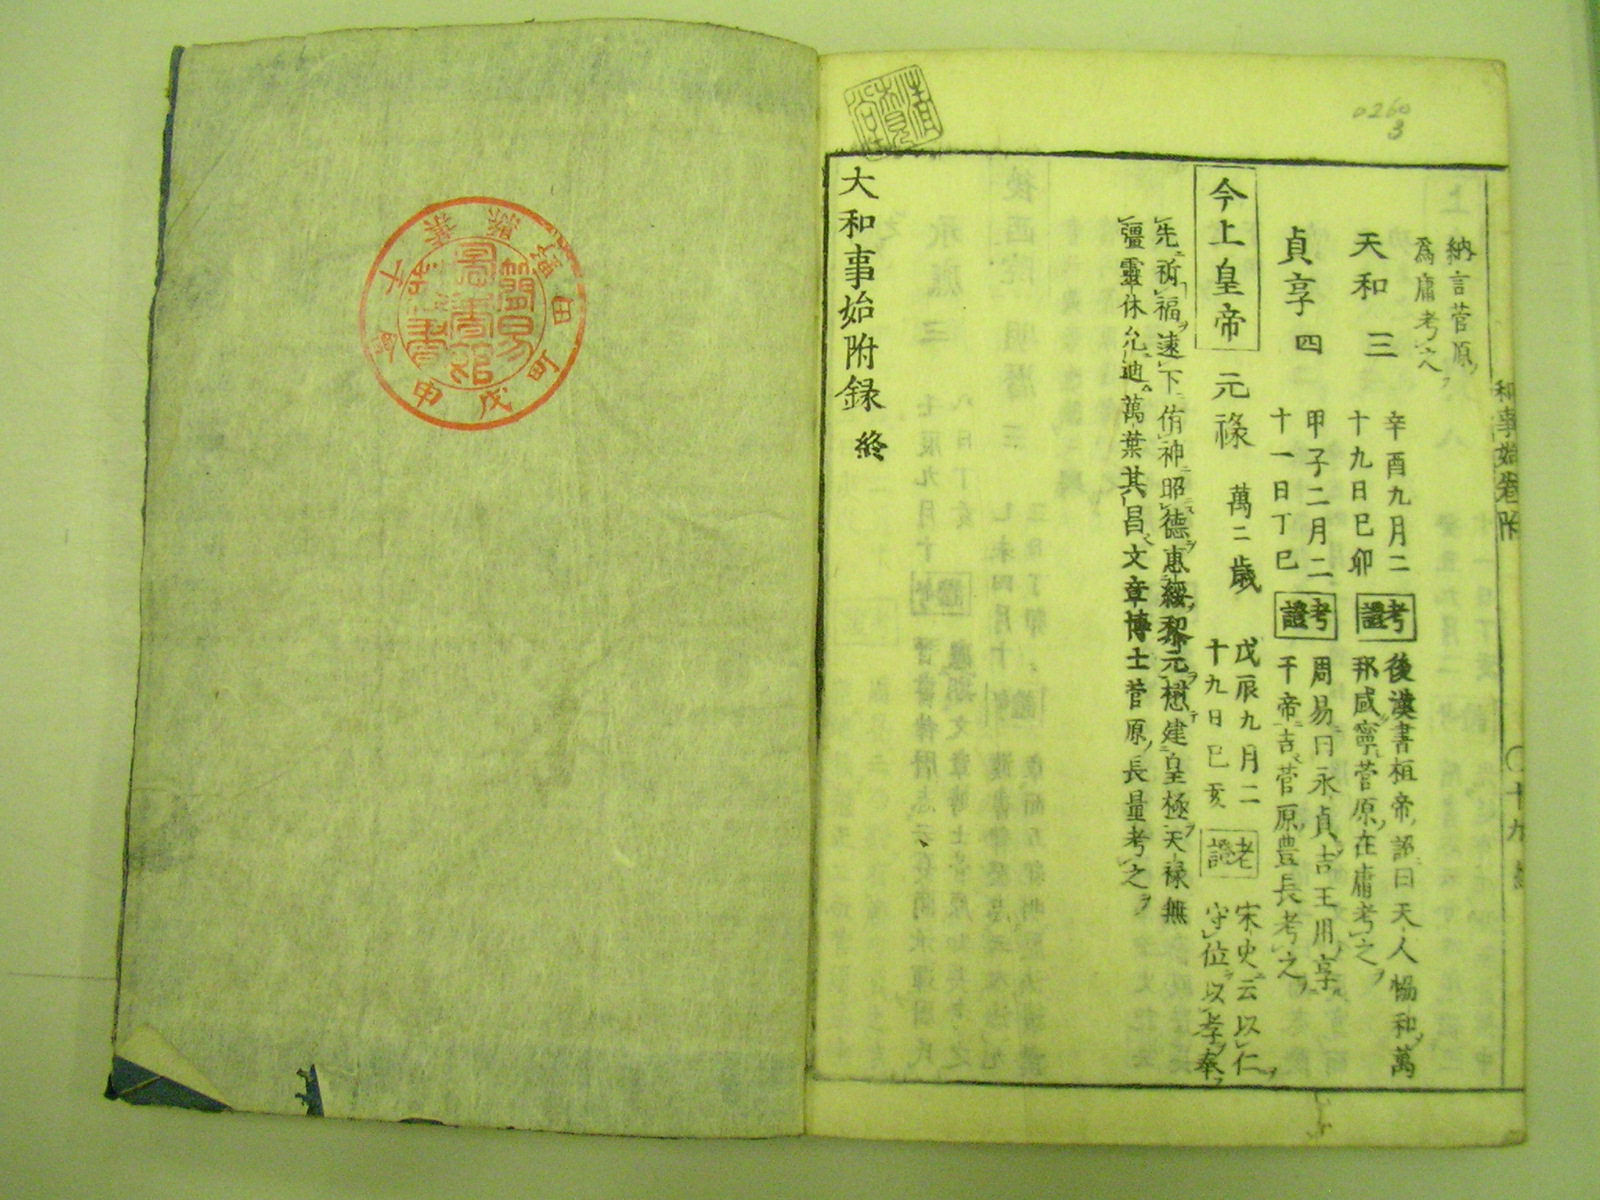 0260
3
納言菅原
為庸考之
天和 三 辛酉九月二
十九日己卯 考證 後漢書桓帝詔曰天人協和萬
邦咸寧菅原在庸考之
貞享 四 甲子二月二
十一日丁巳 考證 周易曰永貞吉王用享
于帝吉菅原豊長考之
今上皇帝 元祿 萬二歳 戊辰九月二
十九日己亥 考證 宋史云以仁
守位以孝奉
先祈福逮下侑神昭德惠綏黎元懋建皇極天祿無
疆靈休允迪萬葉其昌文章博士菅原長量考之
大和事始附録 終
和事始卷附
〇十九